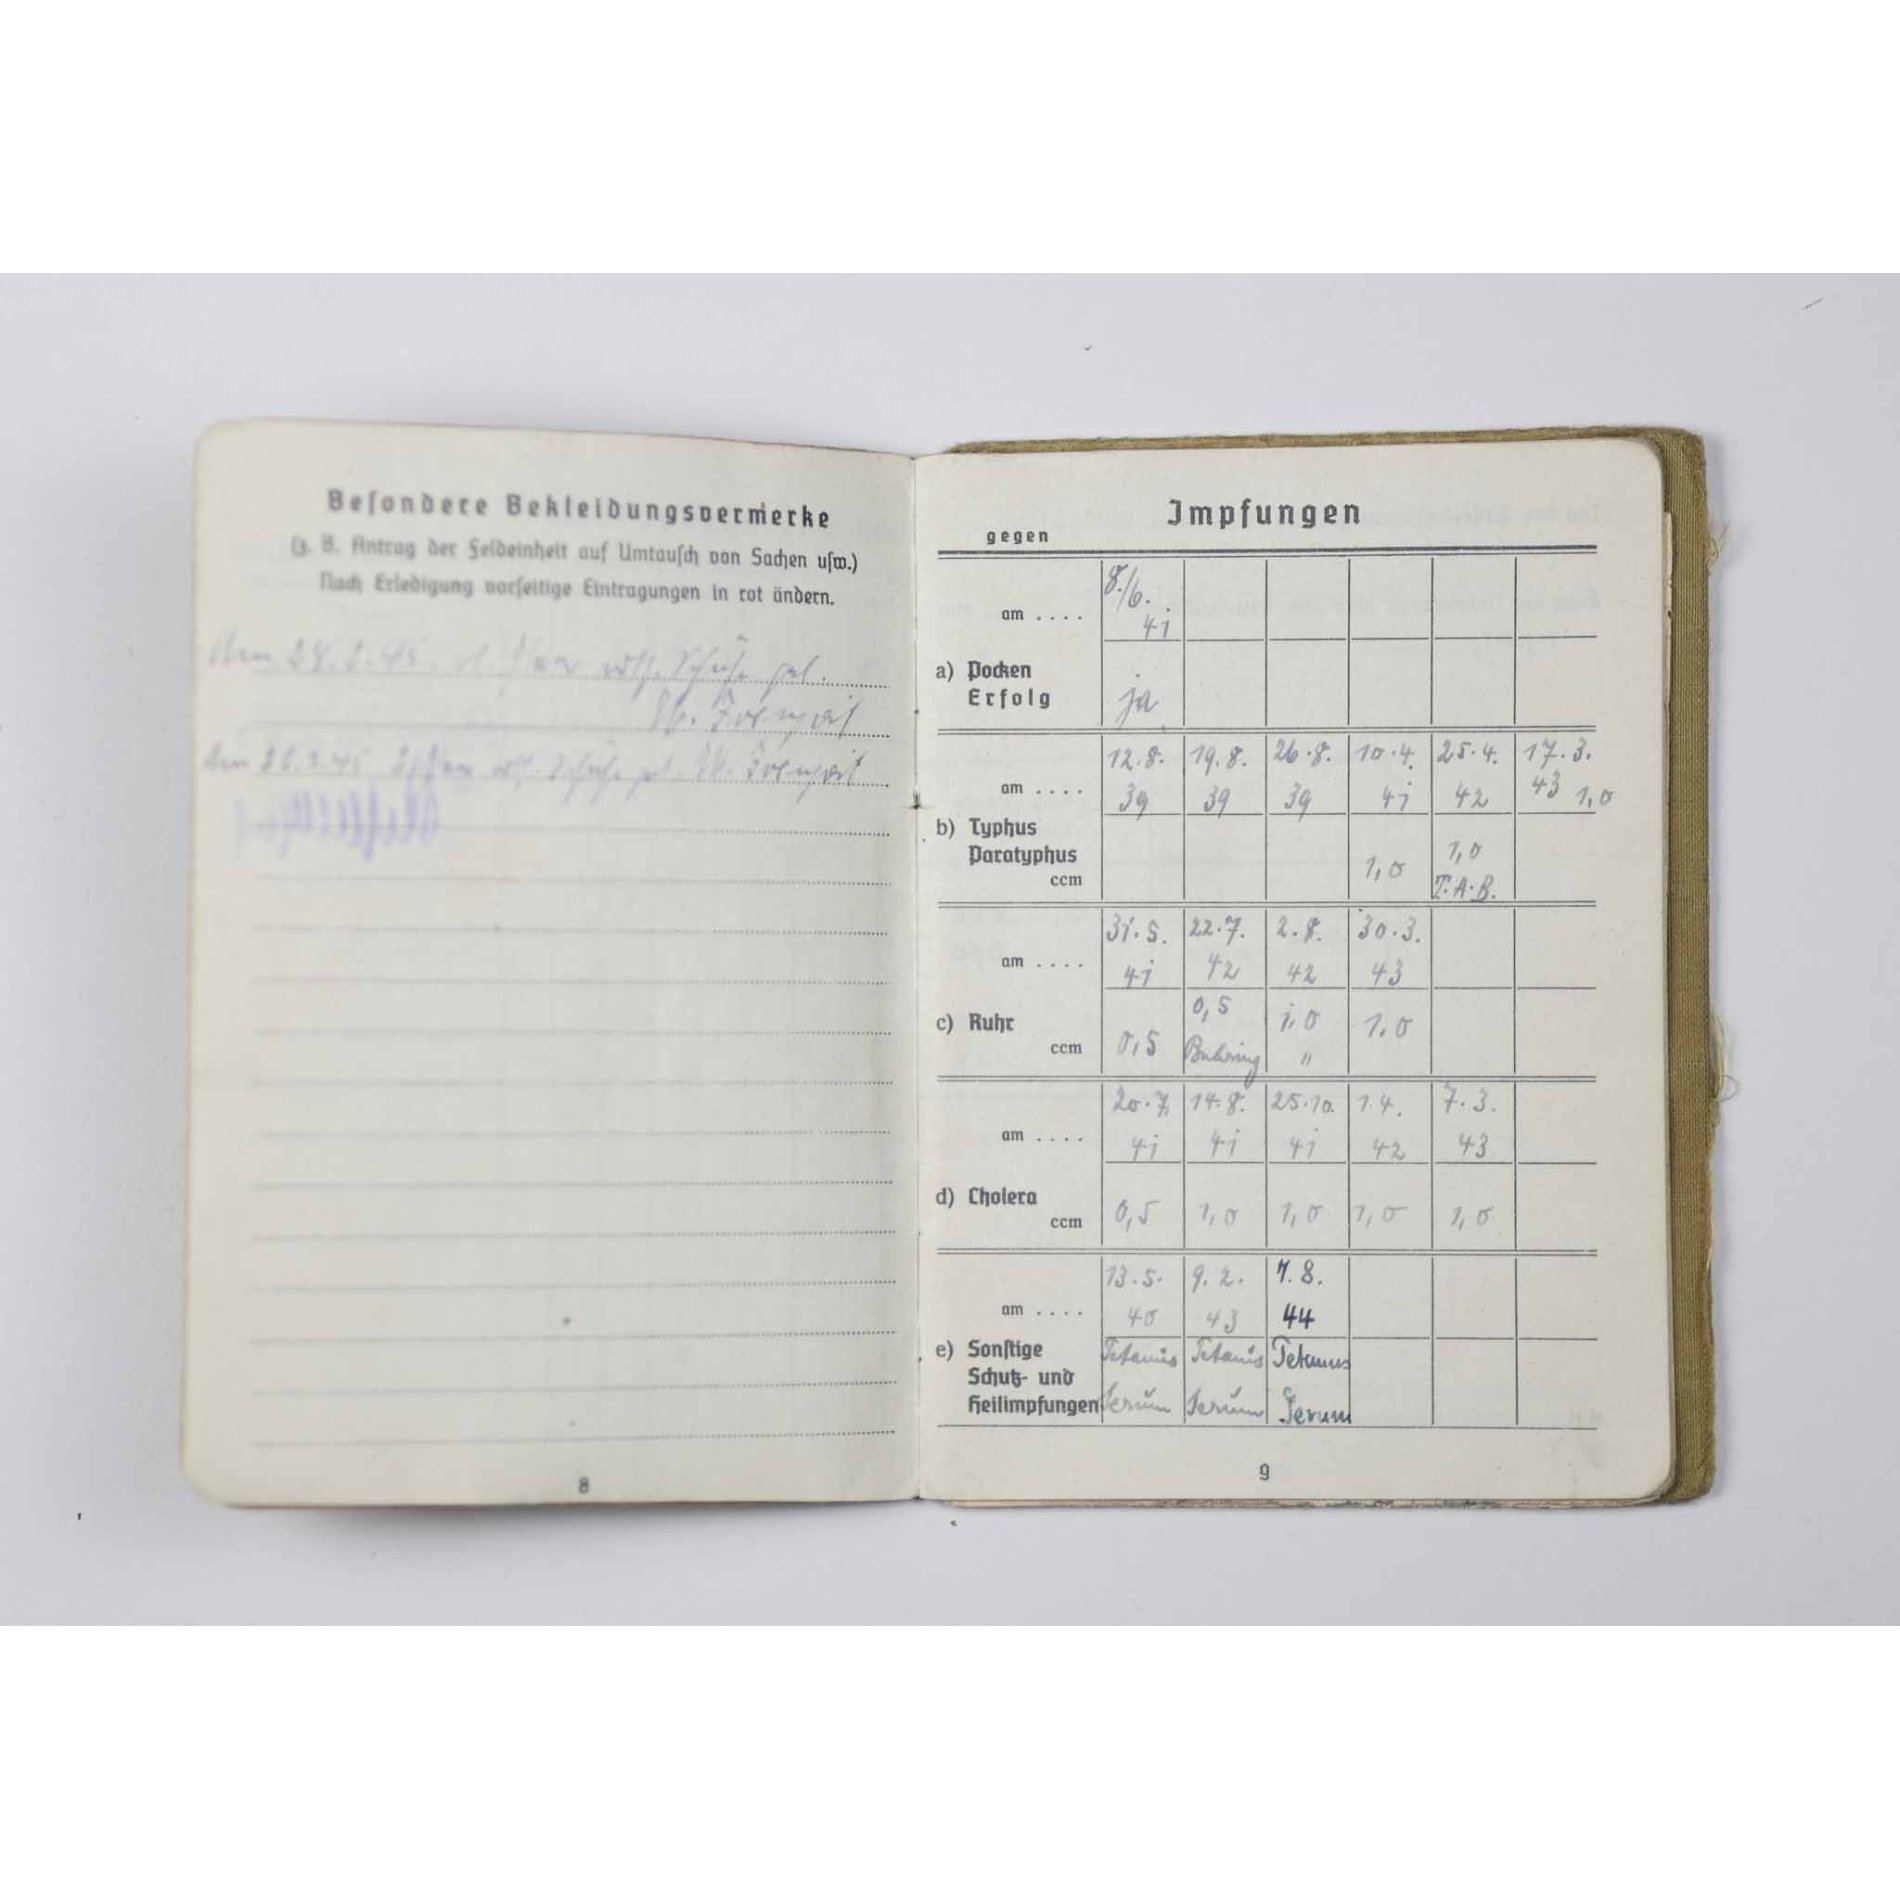 Besondere Bekleidungsvermerke
(z. B. Antrag der Feldeinheit auf Umtausch von Sachen usw.)
Nach Erledigung vorseitige Eintragungen in rot ändern.
Am
Am
8
Impfungen
gegen
am .... 8./6. 41
a) Pocken
Erfolg ja
am .... 12.8. 39 19.8. 39 26.8. 39 10.4. 41 25.4. 42 17.3. 43 1,0
b) Typhus
Paratyphus
ccm 1,0 1,0 T.A.B.
am .... 31.5. 41 22.7. 42 2.8. 42 30.3. 43
c) Ruhr
ccm 0,5 0,5 1,0 " 1,0
am .... 20.7. 41 14.8. 41 25.10. 41 1.4. 42 7.3. 43
d) Cholera
ccm 0,5 1,0 1,0 1,0 1,0
am .... 13.5. 40 9.2. 43 7.8. 44
e) Sonstige Tetanus Tetanus Tetanus
Schutz- und
Heilimpfungen Serum Serum Serum
9